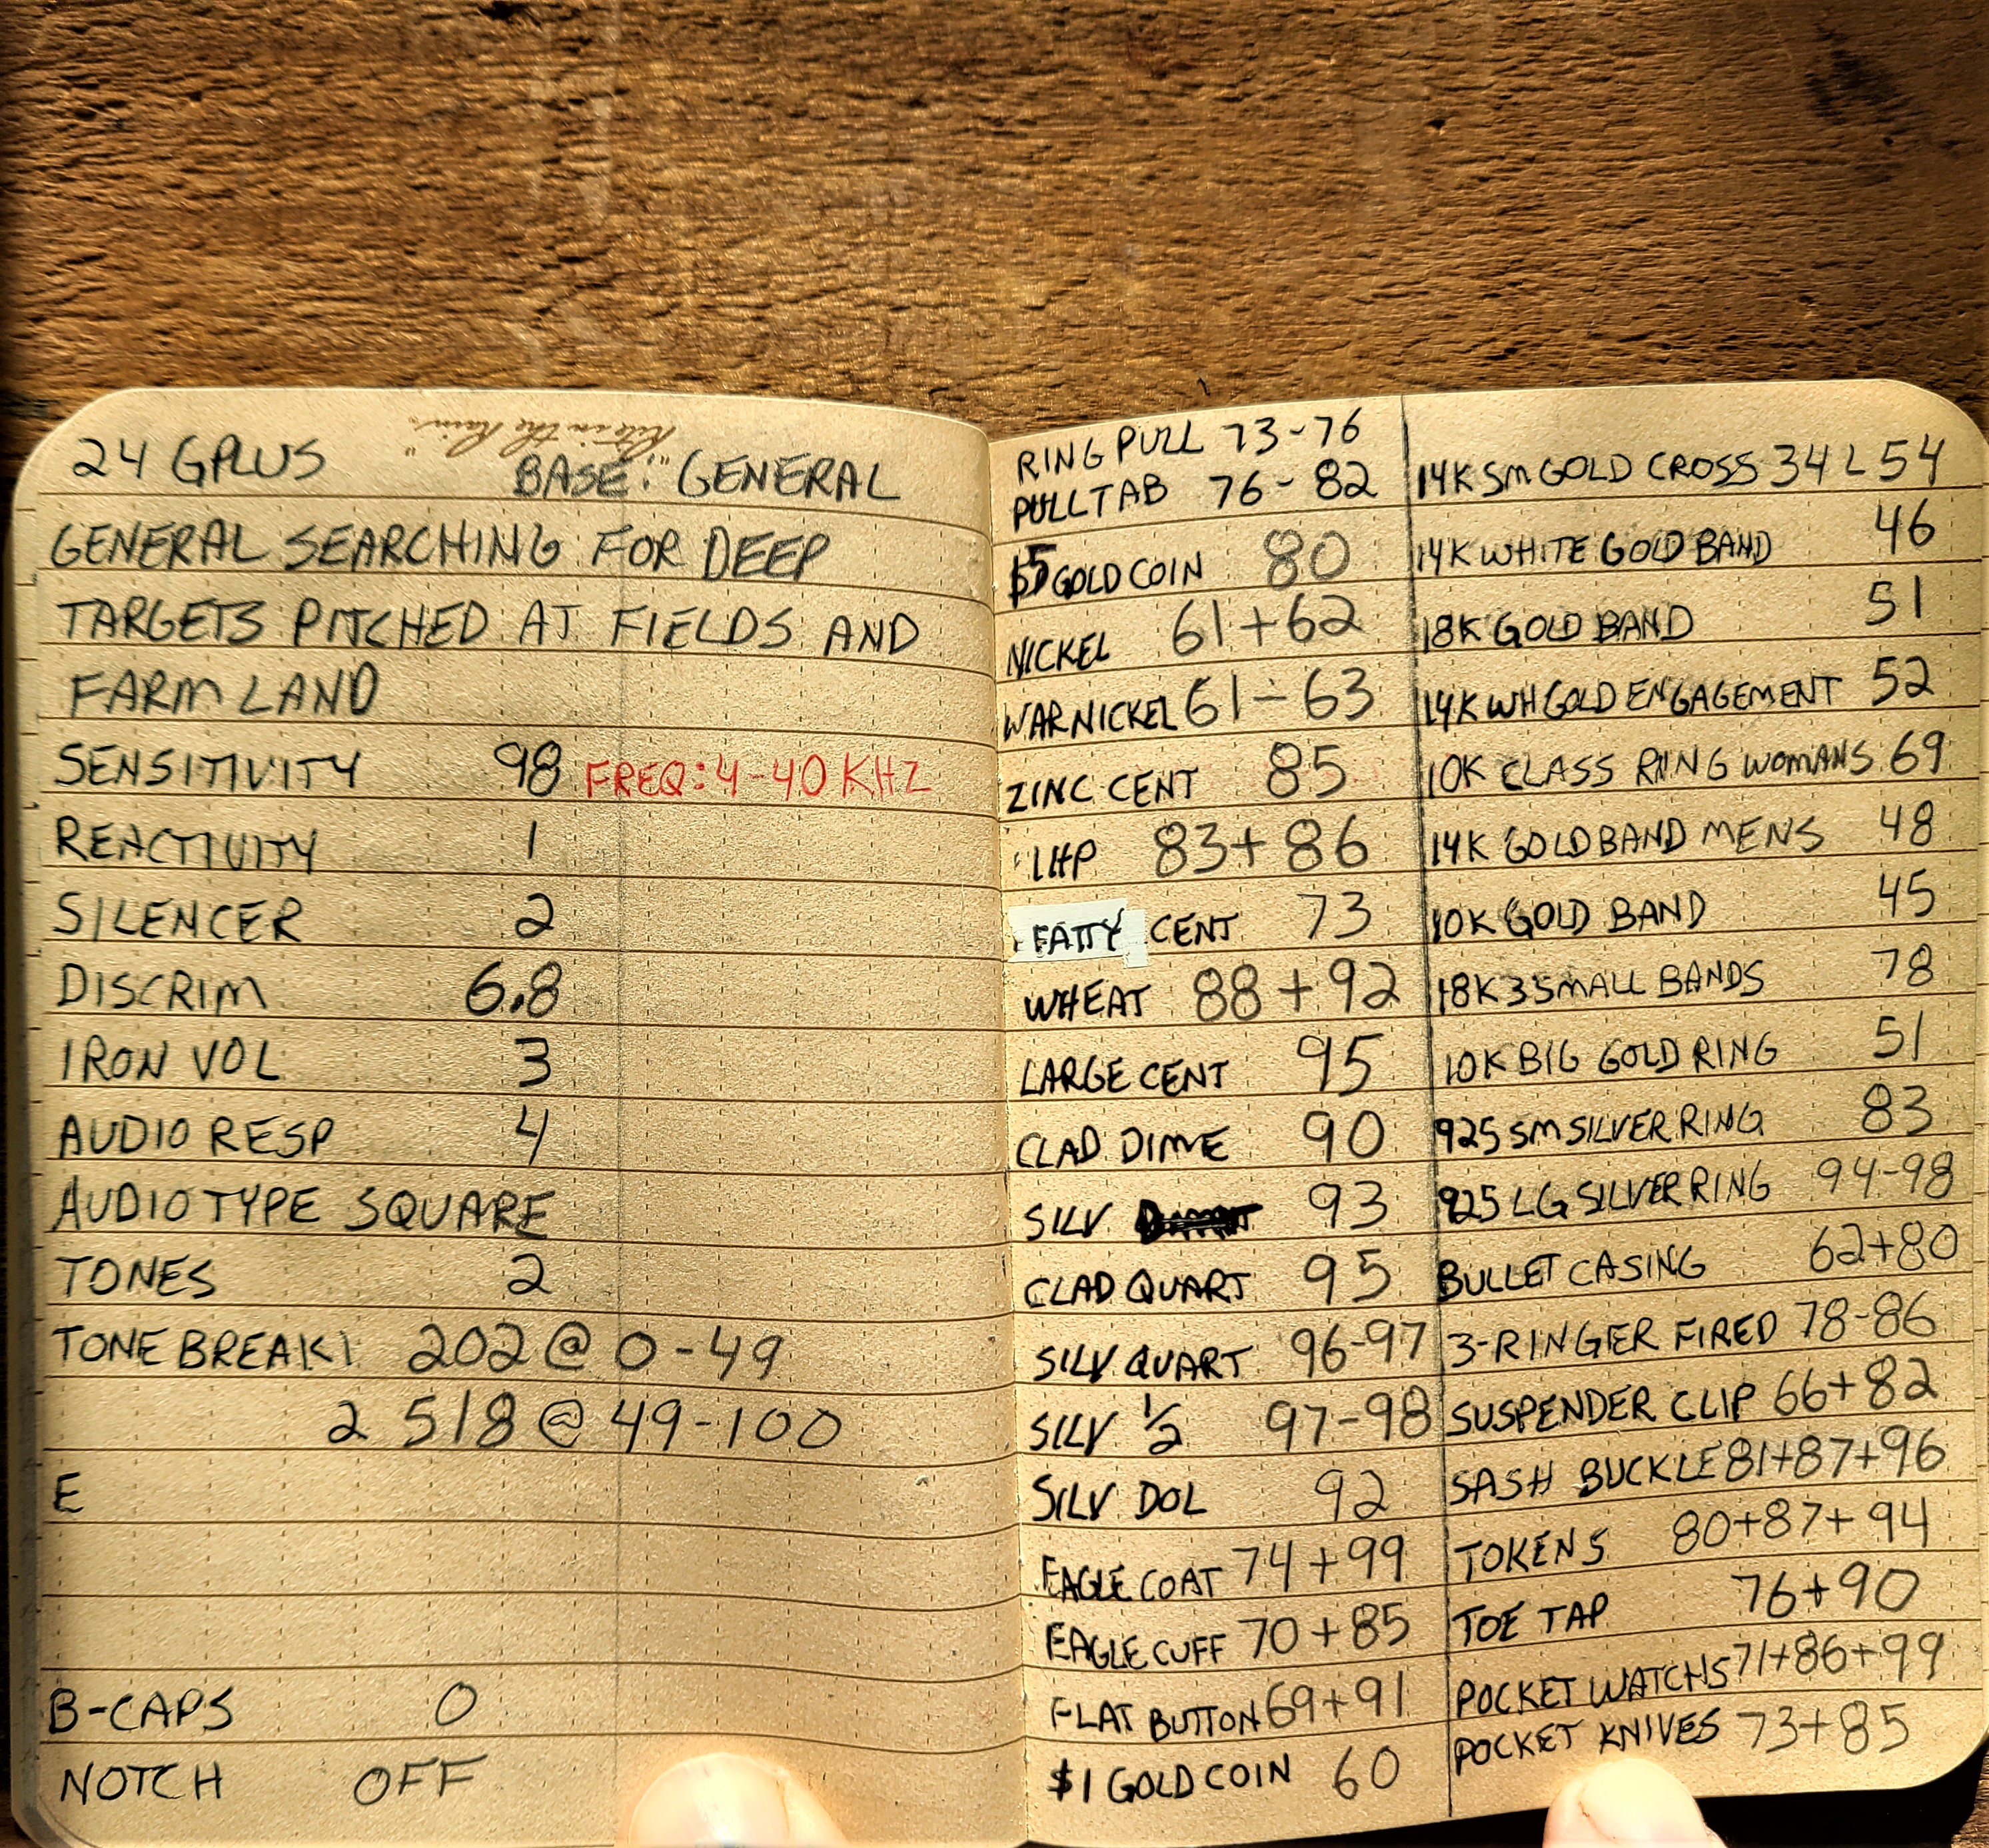 "Rite in the Rain"
24 GPLUS BASE: "GENERAL
GENERAL SEARCHING FOR DEEP
TARGETS PITCHED AT FIELDS AND
FARMLAND
SENSITIVITY 98 FREQ: 4-40 KHZ
REACTIVITY 1
SILENCER 2
DISCRIM 6.8
IRON VOL 3
AUDIO RESP 4
AUDIO TYPE SQUARE
TONES 2
TONE BREAK 1 202 @ 0-49
2 518 @ 49-100
E
B-CAPS 0
NOTCH OFF
RING PULL 73-76
PULLTAB 76-82
$5 GOLD COIN 80
NICKEL 61+62
WARNICKEL 61-63
ZINC CENT 85
IHP 83+86
FATTY CENT 73
WHEAT 88+92
LARGE CENT 95
CLAD DIME 90
SILV 93
CLAD QUART 95
SILV QUART 96-97
SILV 1/2 97-98
SILV DOL 92
EAGLE COAT 74+99
EAGLE CUFF 70+85
FLAT BUTTON 69+91
$1 GOLD COIN 60
14K SM GOLD CROSS 34 L 54
14K WHITE GOLD BAND 46
18K GOLD BAND 51
14K WH GOLD ENGAGEMENT 52
10K CLASS RING WOMANS 69
14K GOLD BAND MENS 48
10K GOLD BAND 45
18K 3 SMALL BANDS 78
10K BIG GOLD RING 51
925 SM SILVER RING 83
925 LG SILVER RING 94-98
BULLET CASING 62+80
3-RINGER FIRED 78-86
SUSPENDER CLIP 66+82
SASH BUCKLE 81+87+96
TOKENS 80+87+94
TOE TAP 76+90
POCKET WATCHS 71+86+99
POCKET KNIVES 73+85